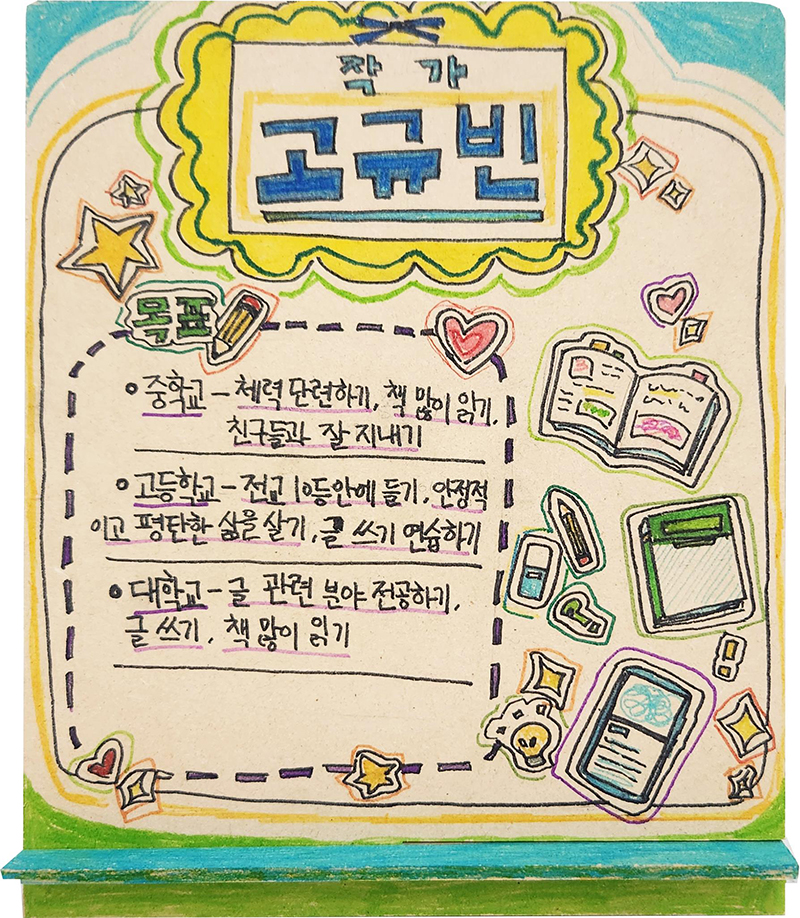 작가
고규빈
목표
• 중학교 - 체력 단련하기, 책 많이 읽기,
친구들과 잘 지내기
• 고등학교 - 전교 10등안에 들기, 안정적
이고 평탄한 삶을 살기, 글 쓰기 연습하기
• 대학교 - 글 관련 분야 전공하기,
글 쓰기, 책 많이 읽기